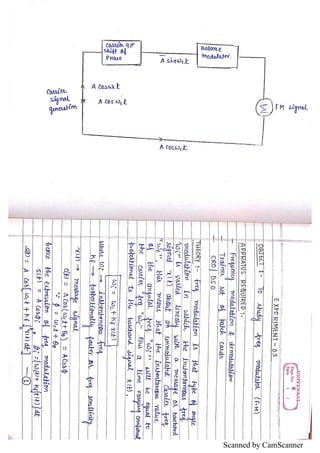 Carrier 90°
shift of
Phase
A sinωct
Balance
modulator.
Carrier
signal
generation
A cosωct
A cosωct
Σ
FM signal
A cosωct
EXPERIMENT - 03
OBJECT :- To study freq modulation (FM)
APPARATUS REQUIRED :-
Frequency modulation & demodulation
Trainer, set of patch cords
CRO / DSO
THEORY :- freq modulation is that type of angle
modulation in which the instantaneous freq
"ωi" is varied linearly with a message or baseband
signal x(t) about an unmodulated carrier freq
"ωc", this means that the instantaneous value
of the angular freq "ωi" will be equal to
the carrier freq ωc plus a time varying component
proportional to the baseband signal x(t).
ωi = ωc + Kf x(t)
where ωi → instantaneous freq
Kf → proportionality factor or freq sensitivity
x(t) → message signal
c(t) = A cos(ωct + θ0) = A cosφ
∵ φ = ωct + θ0
hence the expression of freq modulation
s(t) = A cosφi
φi = ∫[ωc + Kf x(t)] dt
s(t) = A cos[ωct + Kf ∫x(t) dt] — (1)
Scanned by CamScanner